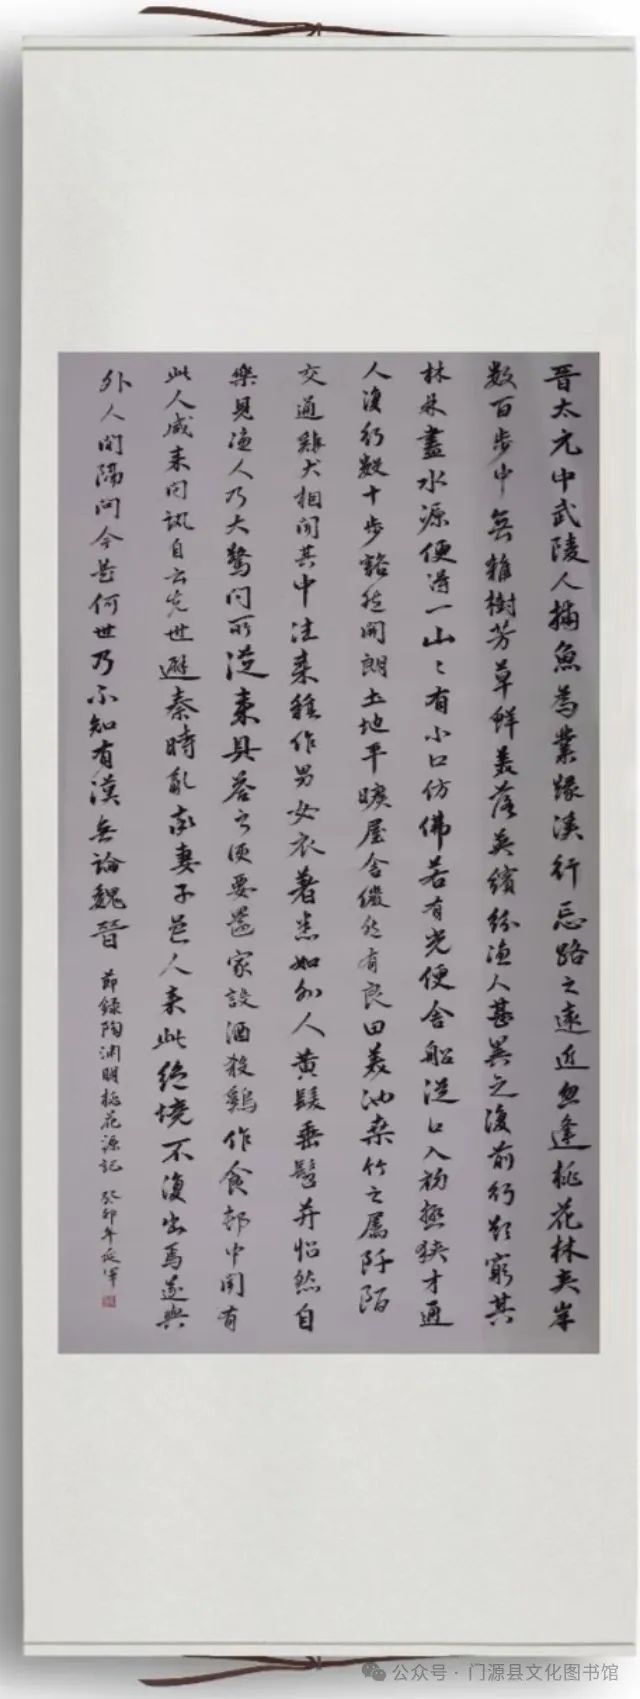 晋太元中武陵人捕魚為業緣溪行忘路之遠近忽逢桃花林夾岸
数百步中無雜樹芳草鮮美落英繽紛漁人甚異之復前行欲窮其
林林盡水源便得一山〻有小口仿佛若有光便舍船從口入初極狹才通
人復行數十步豁然開朗土地平曠屋舍儼然有良田美池桑竹之属阡陌
交通雞犬相聞其中往来種作男女衣著悉如外人黄髮垂髫并怡然自
樂見漁人乃大驚问所從来具答之便要還家設酒殺鷄作食邨中聞有
此人咸来问訊自云先世避秦時亂率妻子邑人来此絶境不復出焉遂與
外人間隔问今是何世乃不知有漢無論魏晉
節録陶渊明桃花源記 癸卯年延军
公众号·门源县文化图书馆